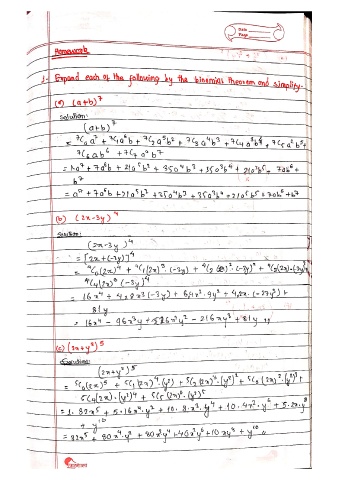 Date
Page
Homework
1. Expand each of the following by the binomial theorem and simplify.
(a) (a+b)⁷
solution:
(a+b)⁷
= ⁷C₀a⁷ + ⁷C₁a⁶b + ⁷C₂a⁵b² + ⁷C₃a⁴b³ + ⁷C₄a³b⁴ + ⁷C₅a²b⁵ +
⁷C₆ab⁶ + ⁷C₇a⁰b⁷
= 1a⁷ + 7a⁶b + 21a⁵b² + 35a⁴b³ + 35a³b⁴ + 21a²b⁵ + 7ab⁶ +
b⁷
= a⁷ + 7a⁶b + 21a⁵b² + 35a⁴b³ + 35a³b⁴ + 21a²b⁵ + 7ab⁶ + b⁷
(b) (2x-3y)⁴
solution:
(2x-3y)⁴
= [2x+(-3y)]⁴
= ⁴C₀(2x)⁴ + ⁴C₁(2x)³.(-3y) + ⁴C₂(2x)².(-3y)² + ⁴C₃(2x).(-3y)³ +
⁴C₄(2x)⁰(-3y)⁴
= 16x⁴ + 4.8x³(-3y) + 6.4x².9y² + 4.2x.(-27y³) +
81y
= 16x⁴ - 96x³y + 216x²y² - 216xy³ + 81y
(c) (2x+y²)⁵
Solution:
(2x+y²)⁵
= ⁵C₀(2x)⁵ + ⁵C₁(2x)⁴.(y²) + ⁵C₂(2x)³.(y²)² + ⁵C₃(2x)².(y²)³ +
⁵C₄(2x).(y²)⁴ + ⁵C₅(2x)⁰.(y²)⁵
= 1.32x⁵ + 5.16x⁴.y² + 10.8x³.y⁴ + 10.4x².y⁶ + 5.2x.y⁸
+ y¹⁰
= 32x⁵ + 80x⁴.y² + 80x³y⁴ + 40x²y⁶ + 10xy⁸ + y¹⁰